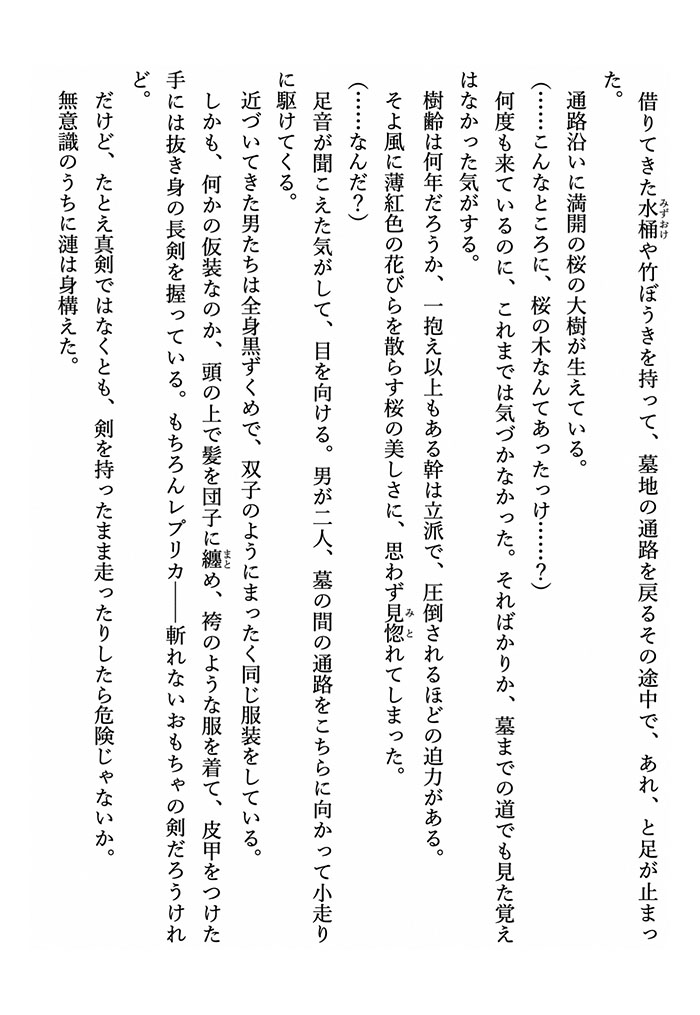 借りてきた水桶や竹ぼうきを持って、墓地の通路を戻るその途中で、あれ、と足が止まっ
た。
通路沿いに満開の桜の大樹が生えている。
(……こんなところに、桜の木なんてあったっけ……?)
何度も来ているのに、これまでは気づかなかった。そればかりか、墓までの道でも見た覚え
はなかった気がする。
樹齢は何年だろうか、一抱え以上もある幹は立派で、圧倒されるほどの迫力がある。
そよ風に薄紅色の花びらを散らす桜の美しさに、思わず見惚れてしまった。
(……なんだ?)
足音が聞こえた気がして、目を向ける。男が二人、墓の間の通路をこちらに向かって小走り
に駆けてくる。
近づいてきた男たちは全身黒ずくめで、双子のようにまったく同じ服装をしている。
しかも、何かの仮装なのか、頭の上で髪を団子に纏め、袴のような服を着て、皮甲をつけた
手には抜き身の長剣を握っている。もちろんレプリカ――斬れないおもちゃの剣だろうけれ
ど。
だけど、たとえ真剣ではなくとも、剣を持ったまま走ったりしたら危険じゃないか。
無意識のうちに漣は身構えた。